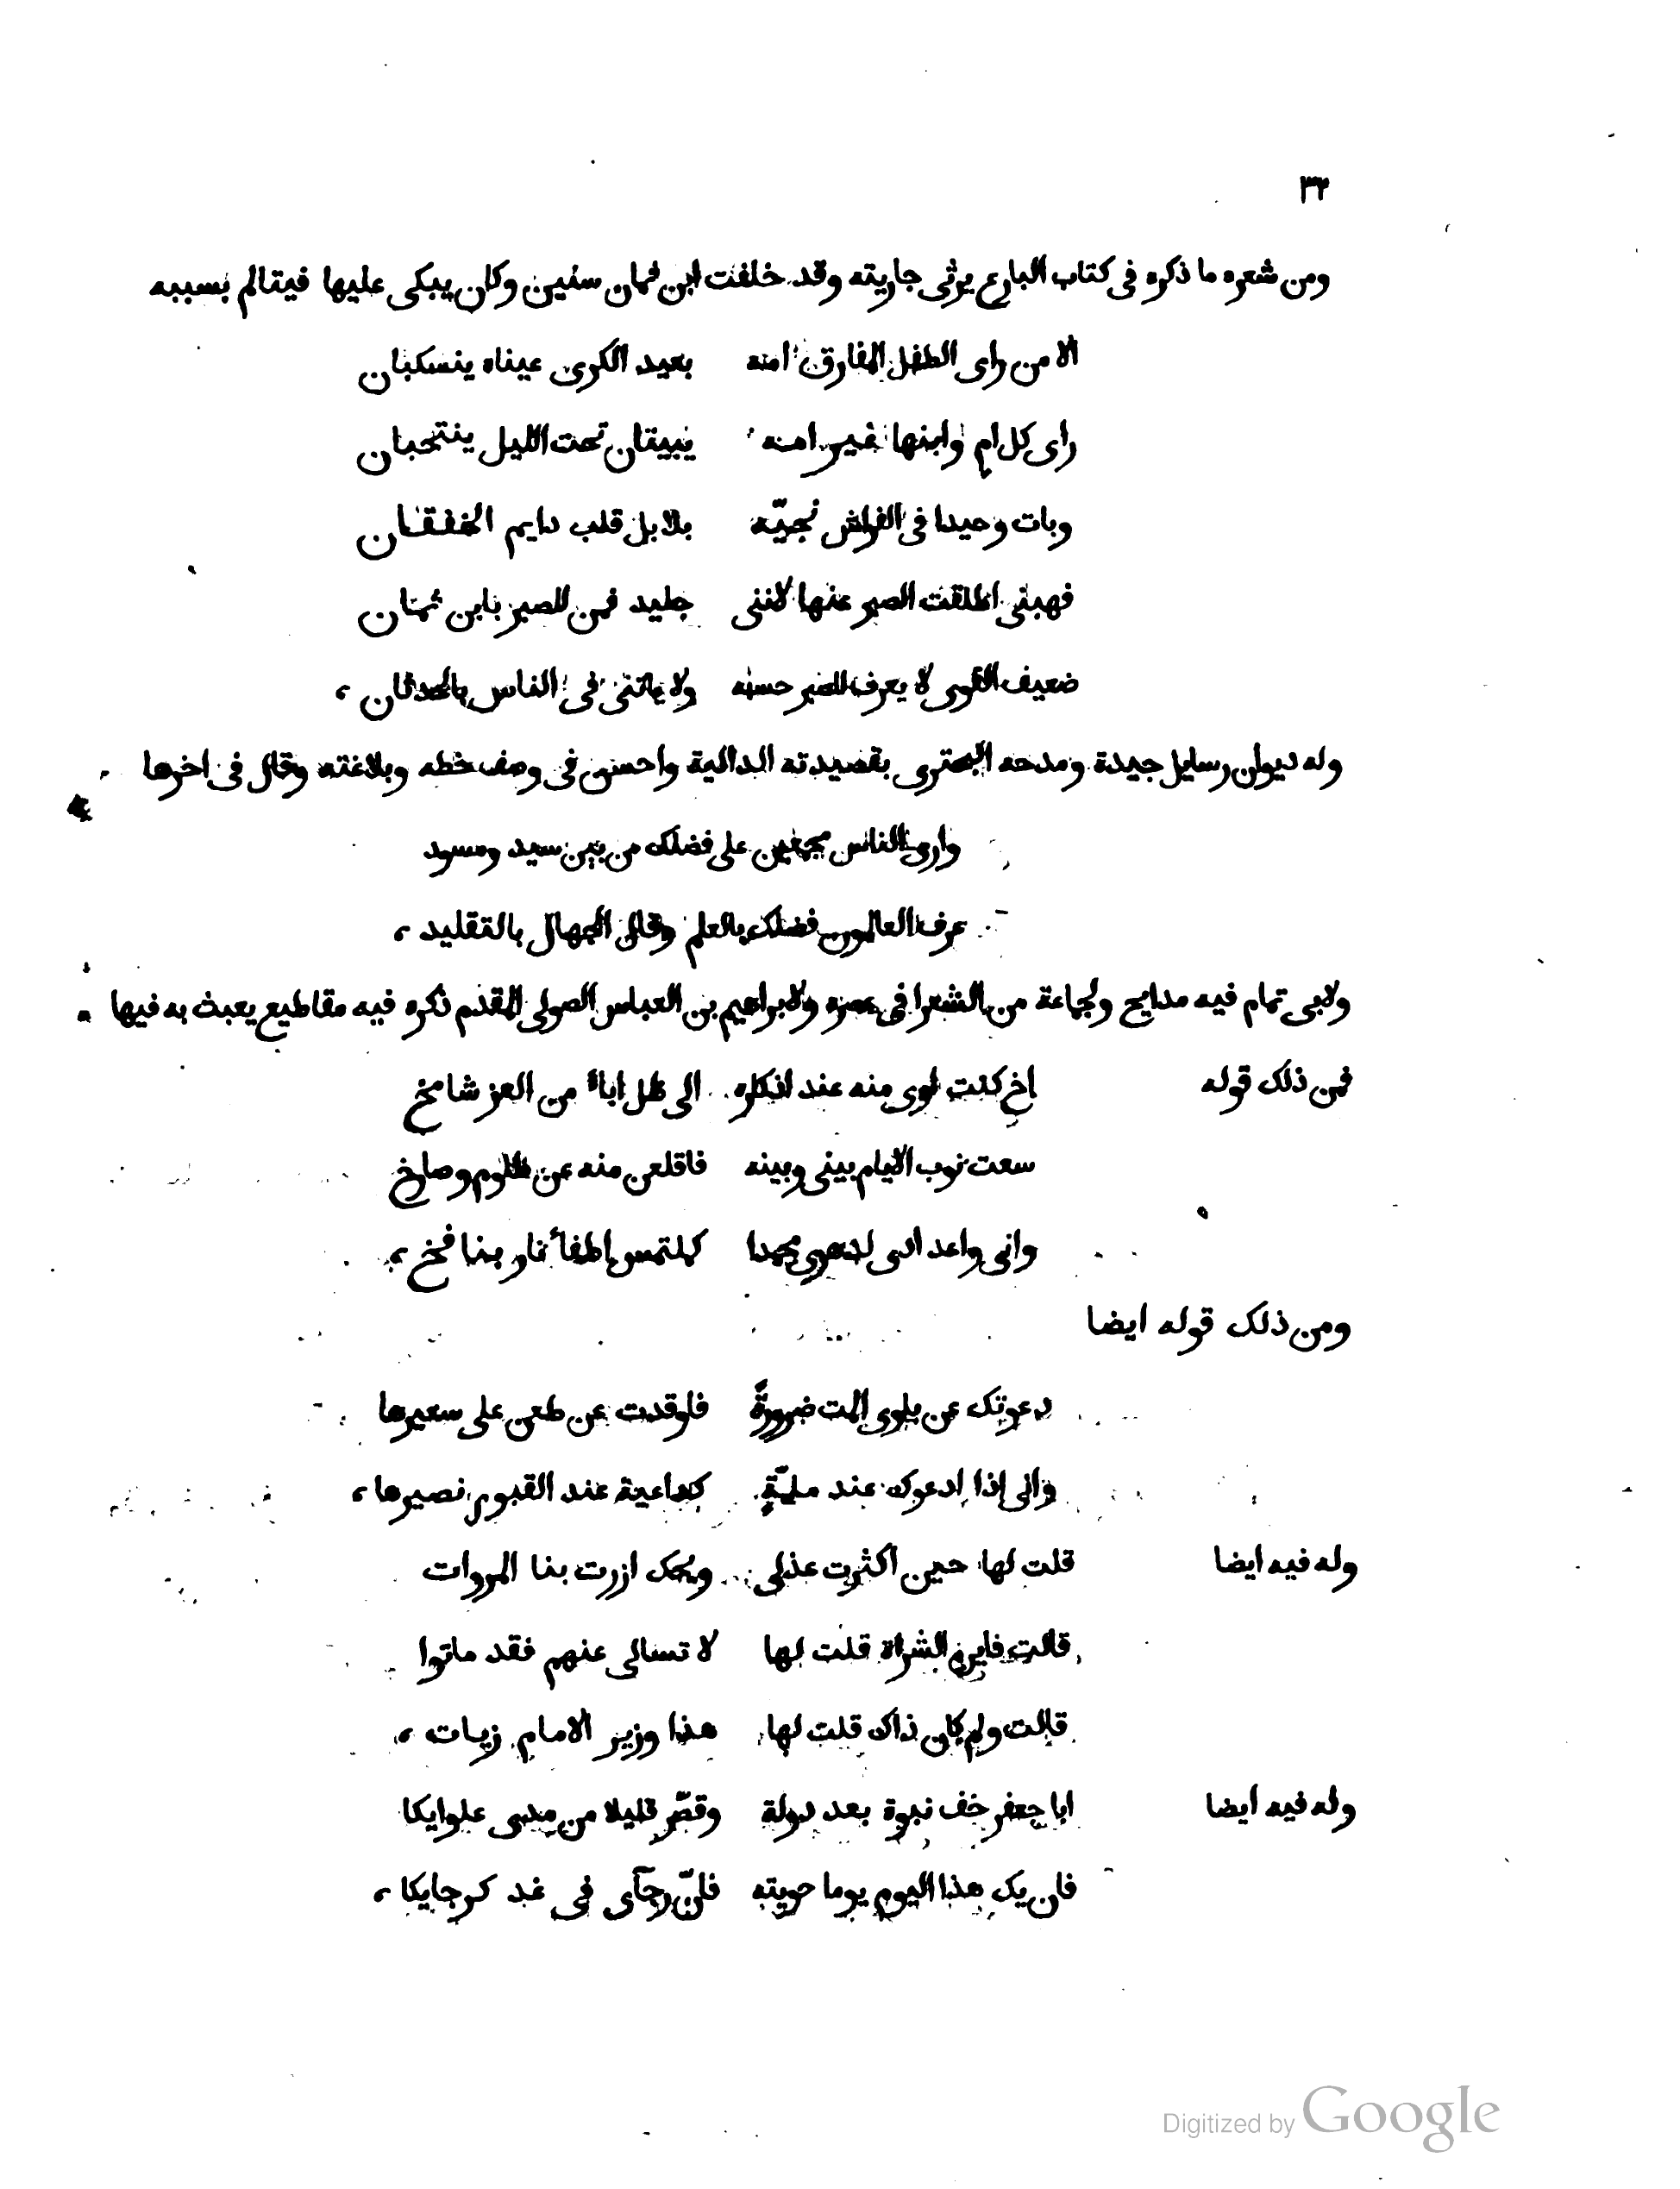 ٣٢
ومن شعره ما ذكره فى كتاب البارع يرثى جاريته وقد خلفت ابن ثمان سنين وكان يبكى عليها فيتالم بسببه
الا من راى الطفل المفارق امه بعيد الكرى عيناه ينسكبان
راى كل ام وابنها غير امه يبيتان تحت الليل ينتحبان
وبات وحيدا فى الفراش نجيّه بلابل قلب دايم الخفقان
فهبنى اطلقت الصبر عنها لاننى جليد فمن للصبر بابن ثمان
ضعيف القوى لا يعرف الصبر حسبه ولا ياتسى فى الناس بالحدثان،
وله ديوان رسايل جيدة ومدحه البحترى بقصيدته الدالية واحسن فى وصف خطه وبلاغته وقال فى اخرها
وارى الناس مجمعين على فضلك من بين سيد ومسود
عرف العالمون فضلك بالعلم وقال الجهال بالتقليد،
ولابى تمام فيه مدايح ولجماعة من الشعرا فى عصره ولابراهيم بن العباس الصولى المقدم ذكره فيه مقاطيع يعبث به فيها
فمن ذلك قوله اخ كنت اوى منه عند اذكاره الى ظل اباء من العز شامخ
سعت نوب الايام بينى وبينه فاقلعن منه عن ظلوم وصارخ
وانى واعدادى لدهرى محمدا كملتمس اطفأ نار بنافخ،
ومن ذلك قوله ايضا
دعوتك عن بلوى المت ضرورةً فاوقدت عن طعن على سعيرها
وانى اذا ادعوك عند ملمّةٍ كداعية عند القبور نصيرها،
وله فيه ايضا قلت لها حين اكثرت عذلى ويحك ازرت بنا المروات
قالت فاين الشراة قلت لها لا تسالى عنهم فقد ماتوا
قالت ولم كان ذاك قلت لها هذا وزير الامام زيات،
وله فيه ايضا ابا جعفر خف نبوة بعد دولة وقصّر قليلا من مدى غلوايكا
فان يك هذا اليوم يوما حويته فانّ رجآى فى غد كرجايكا،
Digitized by Google